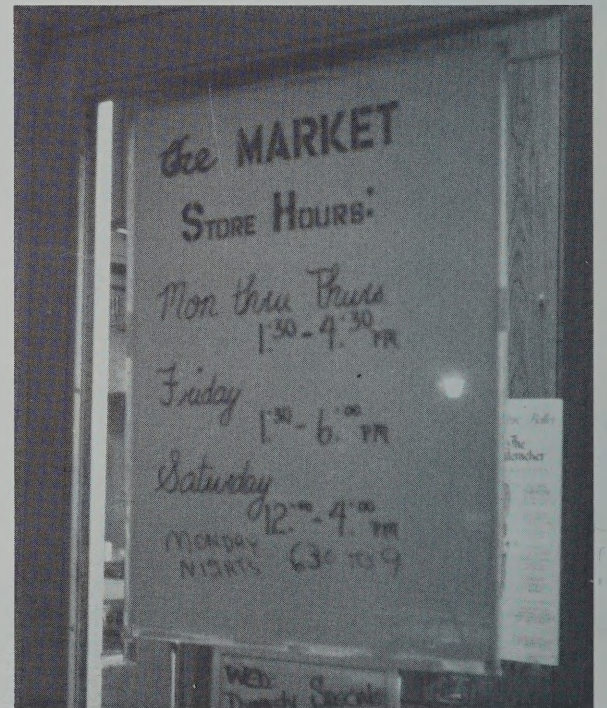 the MARKET
STORE HOURS:
Mon thru Thurs
1:30 - 4:30 PM
Friday
1:30 - 6:00 PM
Saturday
12:00 - 4:00 PM
MONDAY
NIGHTS 630 TO 9
The
WED.
Specials